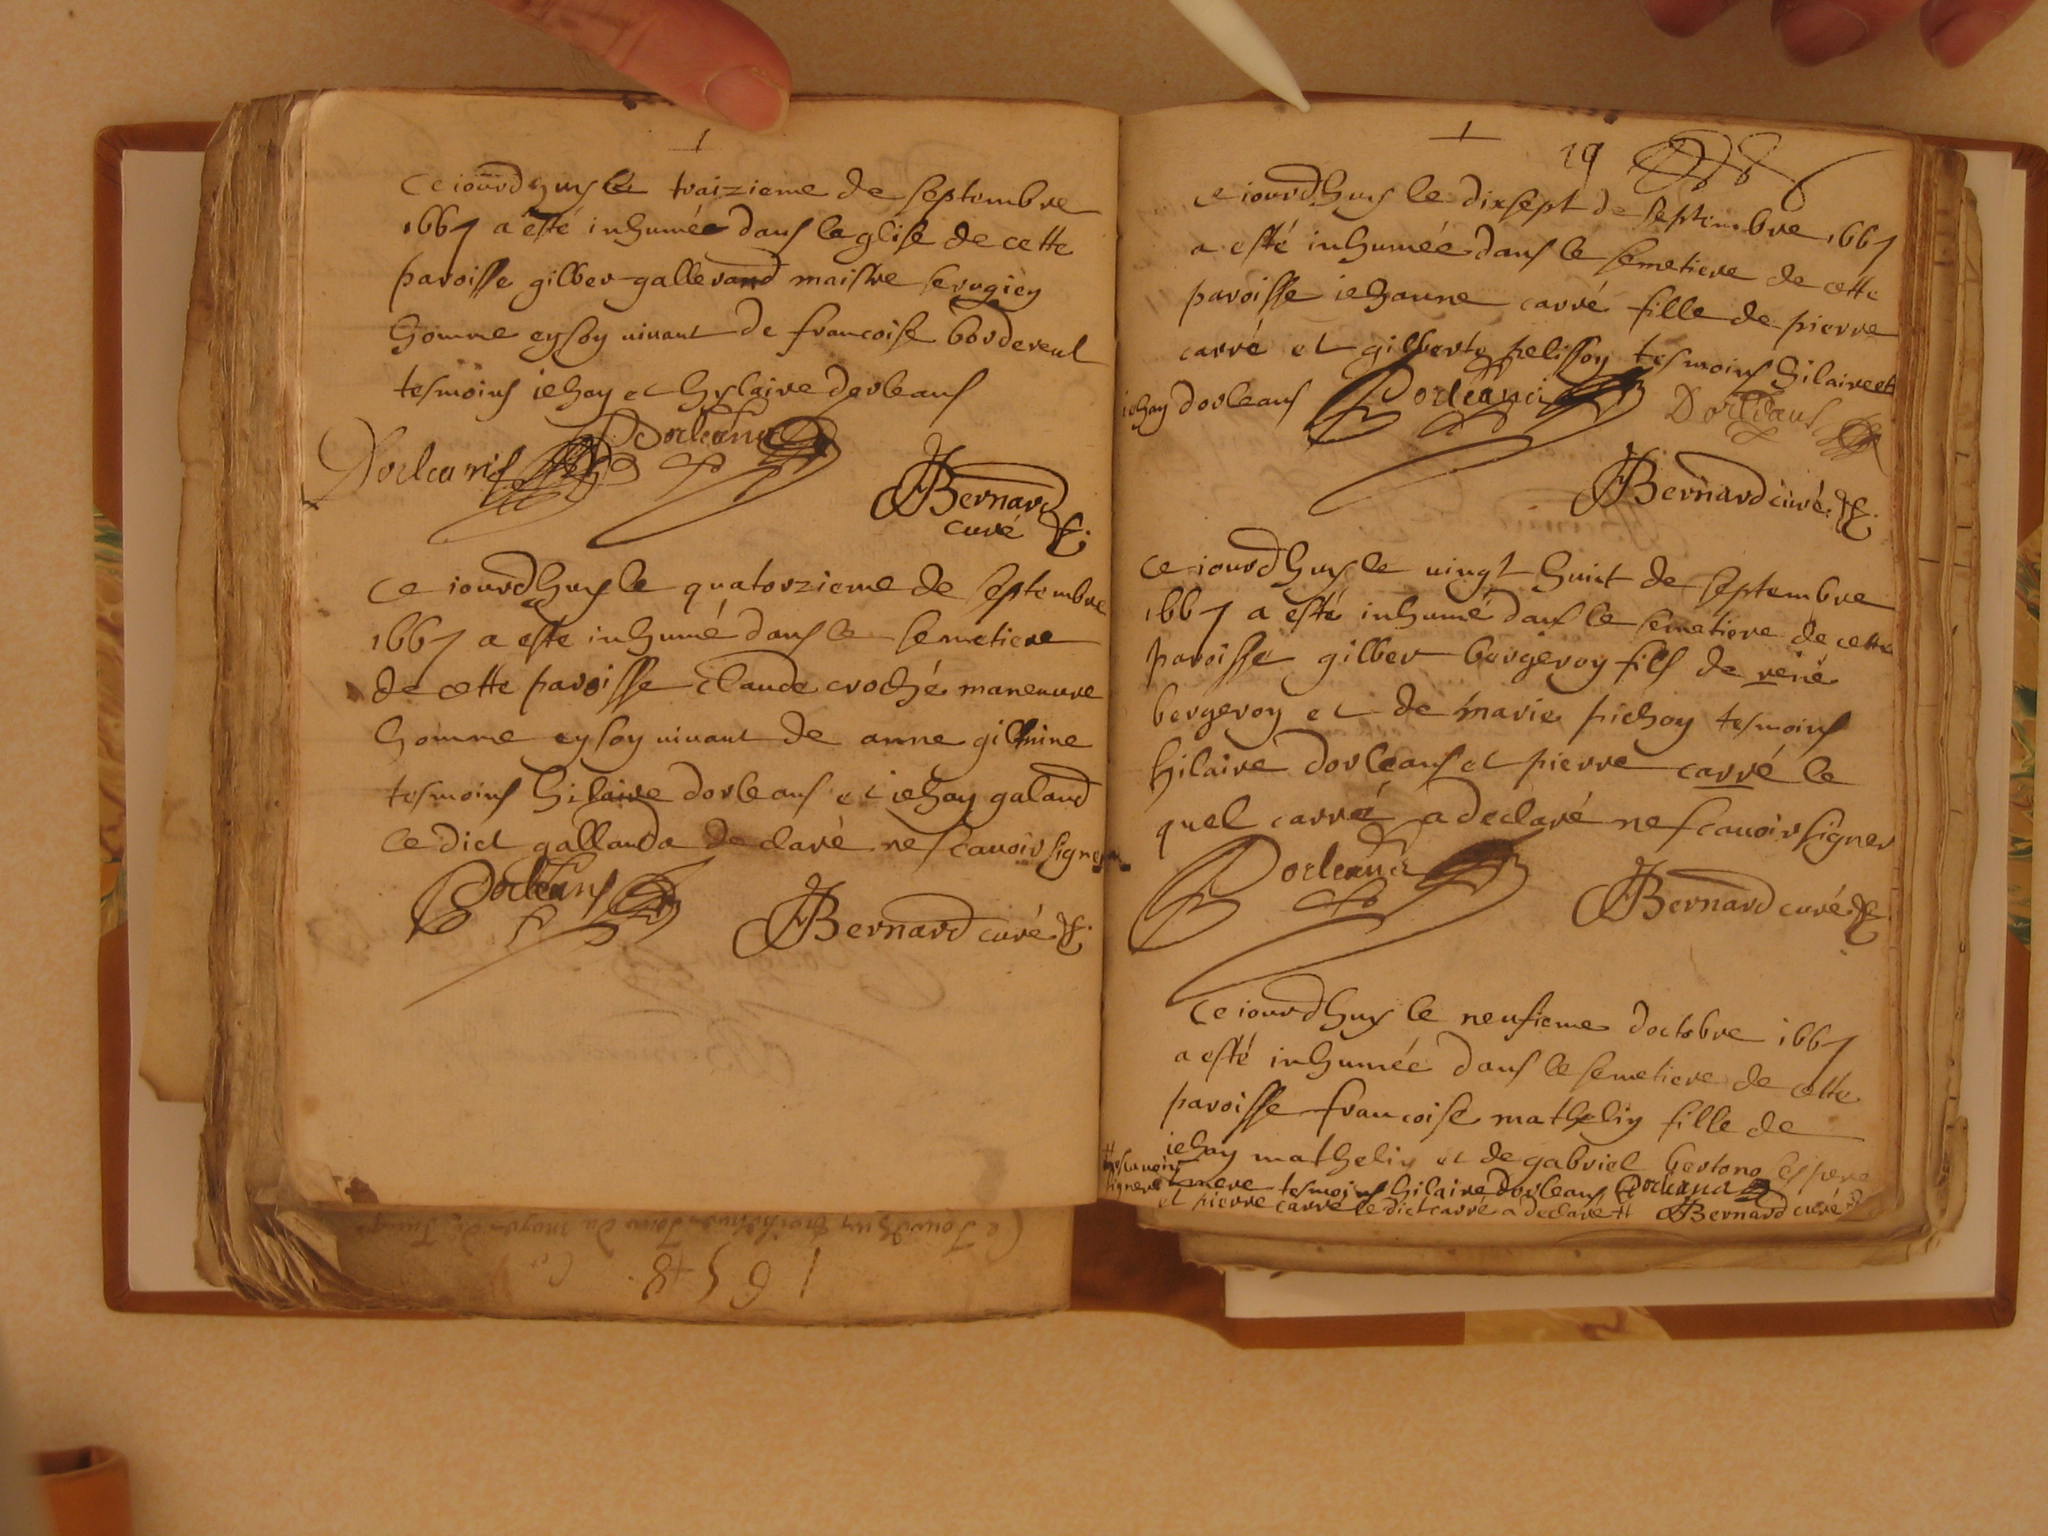 Ce iourdhuy le traizieme de septembre
1667 a esté inhumée dans leglise de cette
paroisse gilber gallerand maistre serugien
homme en son uiuant de francoise bordereul
tesmoins iehan et hylaire dorleans
Dorleans
Dorleans
Bernard
curé
Ce iourdhuy le quatorzieme de septembre
1667 a esté inhumé dans le semetiere
de cette paroisse claude croché maneuure
homme en son uiuant de anne
tesmoins hilaire dorleans et iehan galand
le dict galland a declaré ne scauoir signer
Dorleans
Bernard curé
19
Ce iourdhuy le dixsept de septembre 1667
a esté inhumée dans le semetiere de cette
paroisse iehanne carré fille de pierre
carré et gilberte pelisson tesmoins hilaire et
iehan dorleans
Dorleans
Dorleans
Bernard curé
Ce iourdhuy le uingt huict de septembre
1667 a esté inhumé dans le semetiere de cette
paroisse gilber bergeron fils de rené
bergeron et de marie pichon tesmoins
hilaire dorleans et pierre carré le
quel carré a declaré ne scauoir signer
Dorleans
Bernard curé
Ce iourdhuy le neufieme doctobre 1667
a esté inhumée dans le semetiere de cette
paroisse francoise mathelin fille de
iehan mathelin et de gabriel bertono ses pere
et mere tesmoins hilaire dorleans Dorleans
et pierre carré le dict carré a declaré # Bernard curé
# ne scauoir
signer
1658